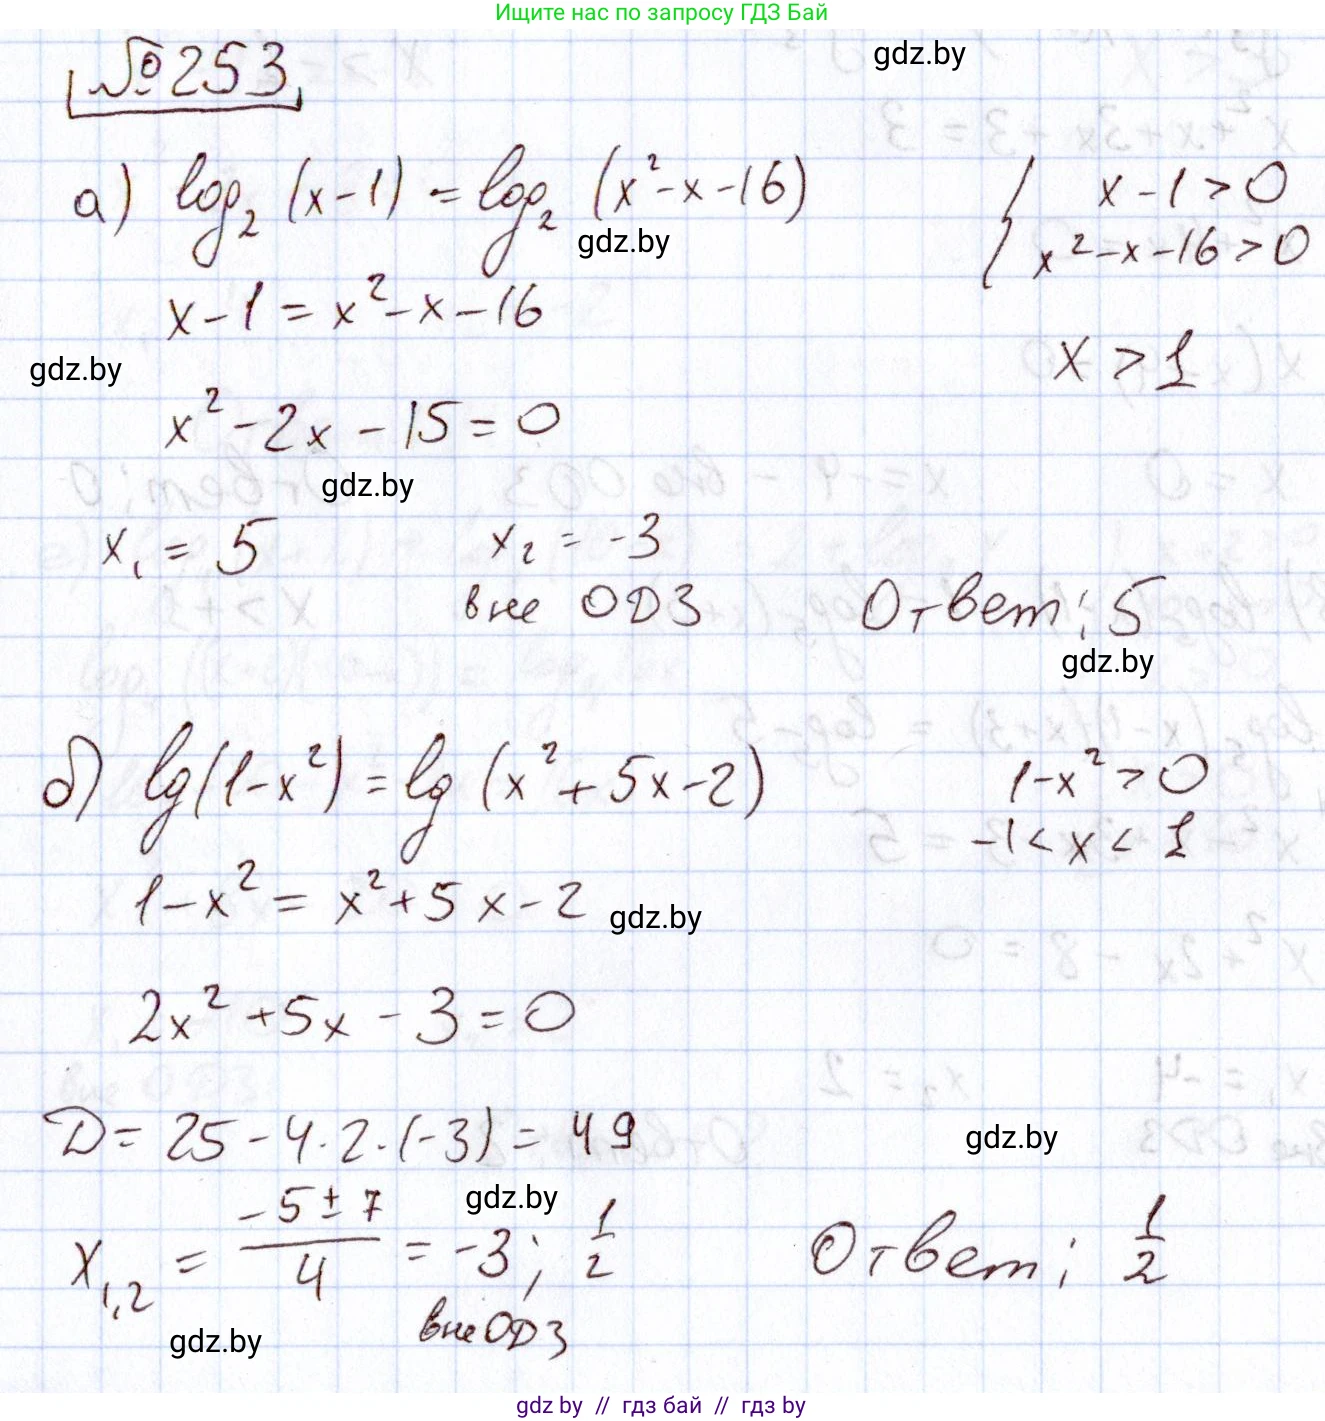 Ищите нас по запросу ГДЗ Бай
№253
gdz.by
а) log₂ (x-1) = log₂ (x²-x-16)
{ x-1>0
x²-x-16>0
gdz.by
x-1 = x²-x-16
gdz.by
x > 1
x²-2x-15=0
gdz.by
x₁ = 5
x₂ = -3
вне ОДЗ
Ответ: 5
gdz.by
б) lg(1-x²) = lg (x²+5x-2)
1-x²>0
-1<x<1
1-x² = x²+5x-2
gdz.by
2x²+5x-3=0
D= 25-4·2·(-3) = 49
gdz.by
gdz.by
x₁,₂ = (-5±7)/4 = -3; 1/2
Ответ: 1/2
вне ОДЗ
gdz.by
gdz by // гдз бай // гдз by